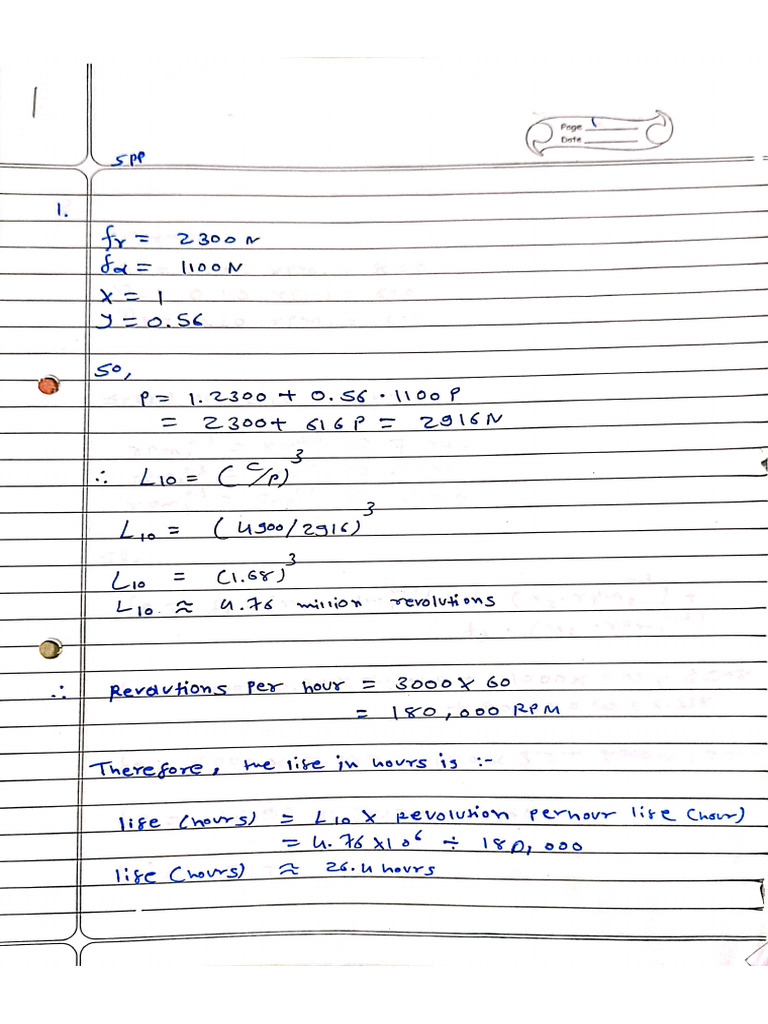 1
Page 1
Date
SPP
1.
fr = 2300N
fa = 1100N
X = 1
Y = 0.56
So,
P = 1.2300 + 0.56 · 1100P
= 2300 + 616P = 2916N
∴ L10 = (C/P)³
L10 = (4900/2916)³
L10 = (1.68)³
L10 ≈ 4.76 million revolutions
∴ Revolutions per hour = 3000 × 60
= 180,000 RPM
Therefore, the life in hours is :-
life (hours) = L10 × Revolution per hour life (hour)
= 4.76 × 10⁶ ÷ 180,000
life (hours) ≈ 26.4 hours